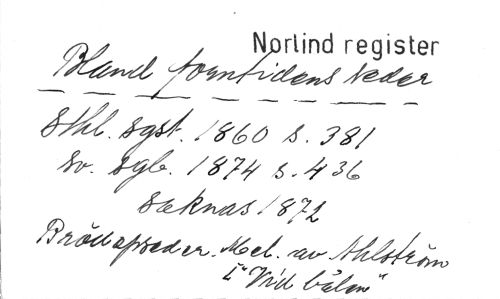 Norlind register
Bland forntidens seder
Sthl. sgst. 1860 s. 381
Sv. sgb. 1874 s. 436
saknas 1872
Mel. av Ahlström
i "Vid